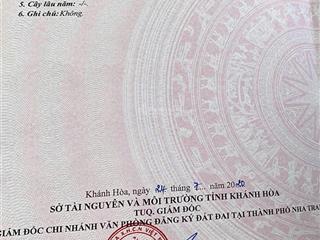 5. Cây lâu năm: -/-
6. Ghi chú: Không.
Khánh Hòa, ngày 24 tháng 7 năm 2020
SỞ TÀI NGUYÊN VÀ MÔI TRƯỜNG TỈNH KHÁNH HÒA
TUQ. GIÁM ĐỐC
GIÁM ĐỐC CHI NHÁNH VĂN PHÒNG ĐĂNG KÝ ĐẤT ĐAI TẠI THÀNH PHỐ NHA TRANG